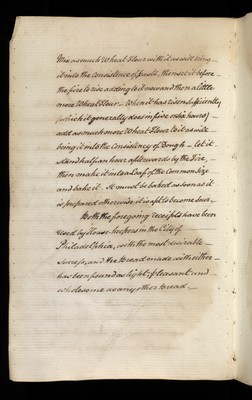 Mix as much Wheat Flour with it as will bring
it into the consistence of paste, then set it before
the fire to rise adding to it now and then a little
more Wheat Flour — When it has risen sufficiently
(which it generally does in five or six hours)
add as much more Wheat Flour to it as will
bring it into the Consistency of Dough — Let it
stand half an hour afterwards by the Fire,
then make it into a Loaf of the Common Size
and bake it. It must be baked as soon as it
is prepared otherwise it is apt to become sour.
Both the foregoing receipts have been
used by House-keepers in the City of
Philadelphia, with the most desirable
success, and the Bread made with either
has been found as light, pleasant and
wholesome as any other Bread —